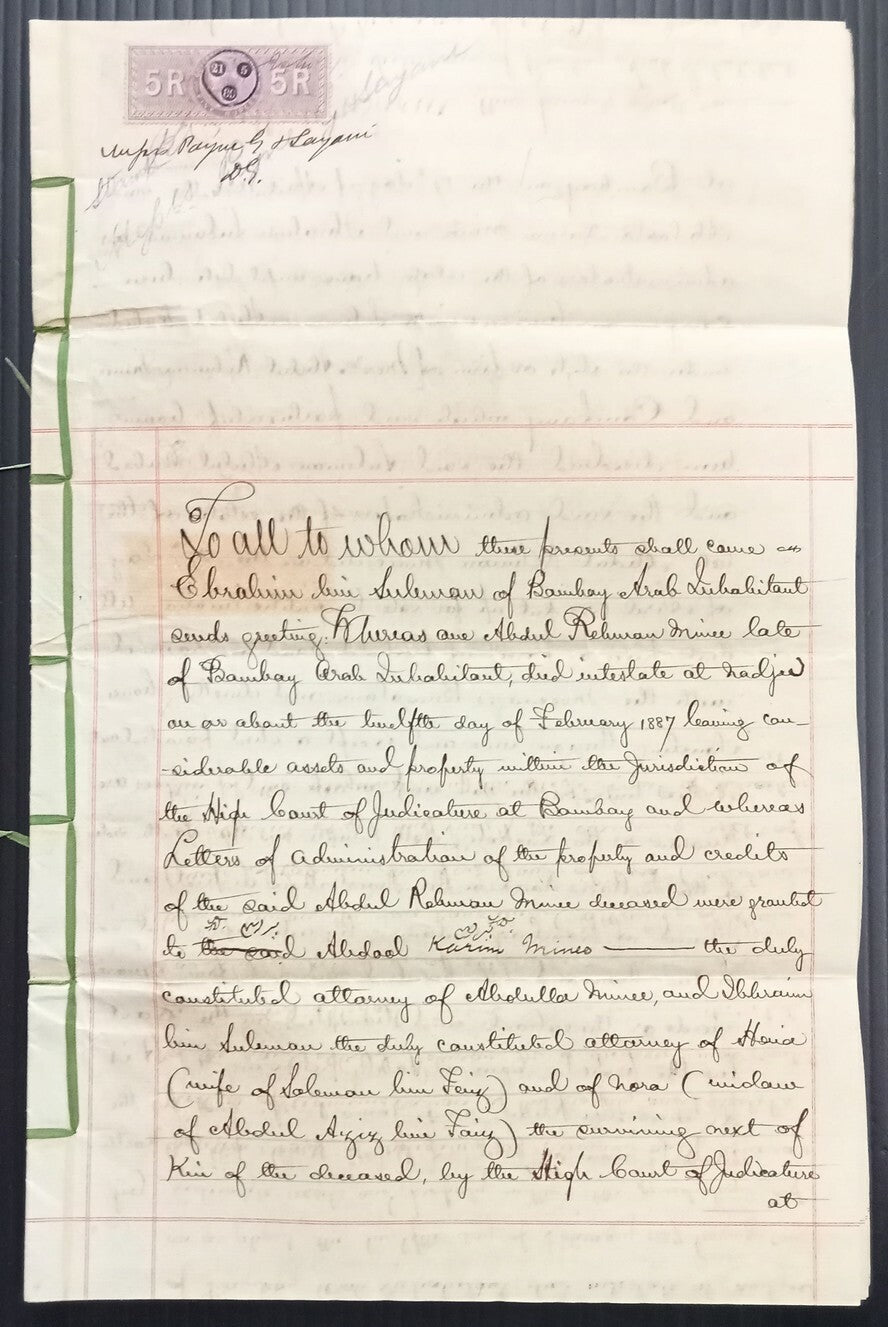 5R 5R
21 5
Payne G & Sayani
D.G.
To all to whom these presents shall come
Ebrahim bin Suleman of Bombay Arab Inhabitant
sends greeting: Whereas one Abdul Rehman Minee late
of Bombay Arab Inhabitant, died intestate at Nadjeed
on or about the twelfth day of February 1887 leaving con-
-siderable assets and property within the Jurisdiction of
the High Court of Judicature at Bombay and whereas
Letters of administration of the property and credits
of the said Abdul Rehman Minee deceased were granted
to the said Abdool Karim Minee the duly
constituted attorney of Abdulla Minee, and Ibhraim
bin Suleman the duly constituted attorney of Heria
(wife of Soleman bin Feiz) and of Nora (widow
of Abdul Aziz bin Faiz) the surviving next of
Kin of the deceased, by the High Court of Judicature
at